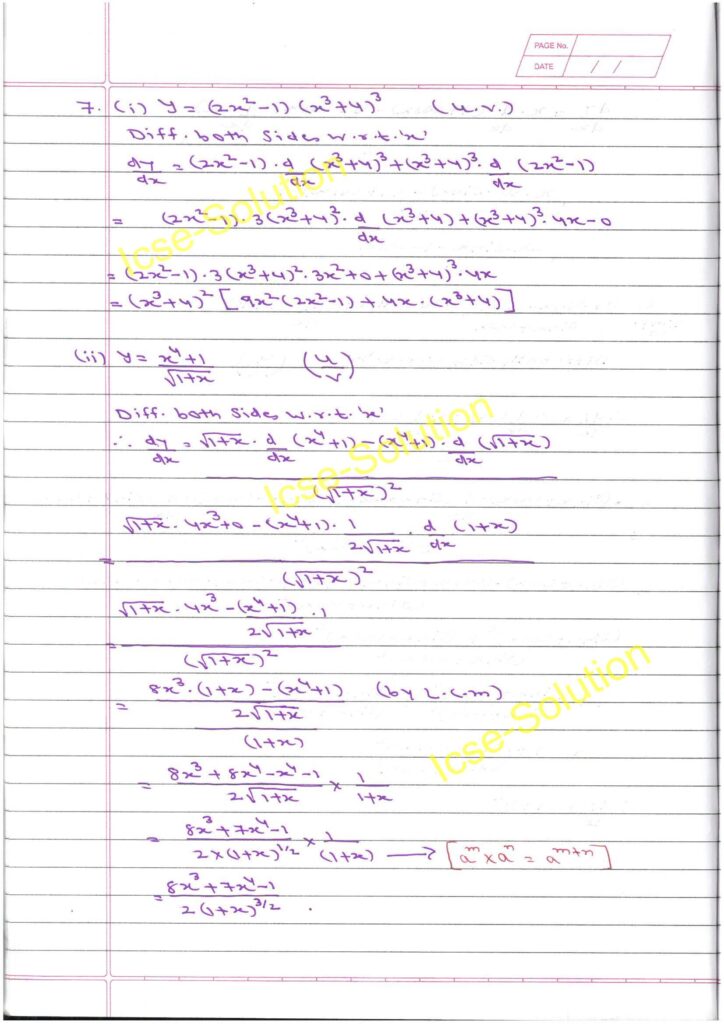 PAGE No.
DATE / /
7. (i) y = (2x²-1) (x³+4)³ (u.v.)
Diff. both sides w.r.t. 'x'
dy/dx = (2x²-1) . d/dx (x³+4)³ + (x³+4)³ . d/dx (2x²-1)
= (2x²-1) . 3(x³+4)² . d/dx (x³+4) + (x³+4)³ . 4x-0
= (2x²-1) . 3(x³+4)² . 3x²+0 + (x³+4)³ . 4x
= (x³+4)² [9x²(2x²-1) + 4x . (x³+4)]
(ii) y = x⁴+1 / √1+x (u/v)
Diff. both sides w.r.t. 'x'
∴ dy/dx = √1+x . d/dx (x⁴+1) - (x⁴+1) . d/dx (√1+x) / (√1+x)²
= √1+x . 4x³+0 - (x⁴+1) . 1/2√1+x . d/dx (1+x) / (√1+x)²
= √1+x . 4x³ - (x⁴+1)/2√1+x . 1 / (√1+x)²
= 8x³ . (1+x) - (x⁴+1) / 2√1+x / (1+x) (by L.C.M)
= 8x³ + 8x⁴ - x⁴ - 1 / 2√1+x × 1/1+x
= 8x³ + 7x⁴ - 1 / 2×(1+x)^1/2 × 1/(1+x) → [a^m × a^n = a^m+n]
= 8x³ + 7x⁴ - 1 / 2(1+x)^3/2 .
Icse-Solution
Icse-Solution
Icse-Solution